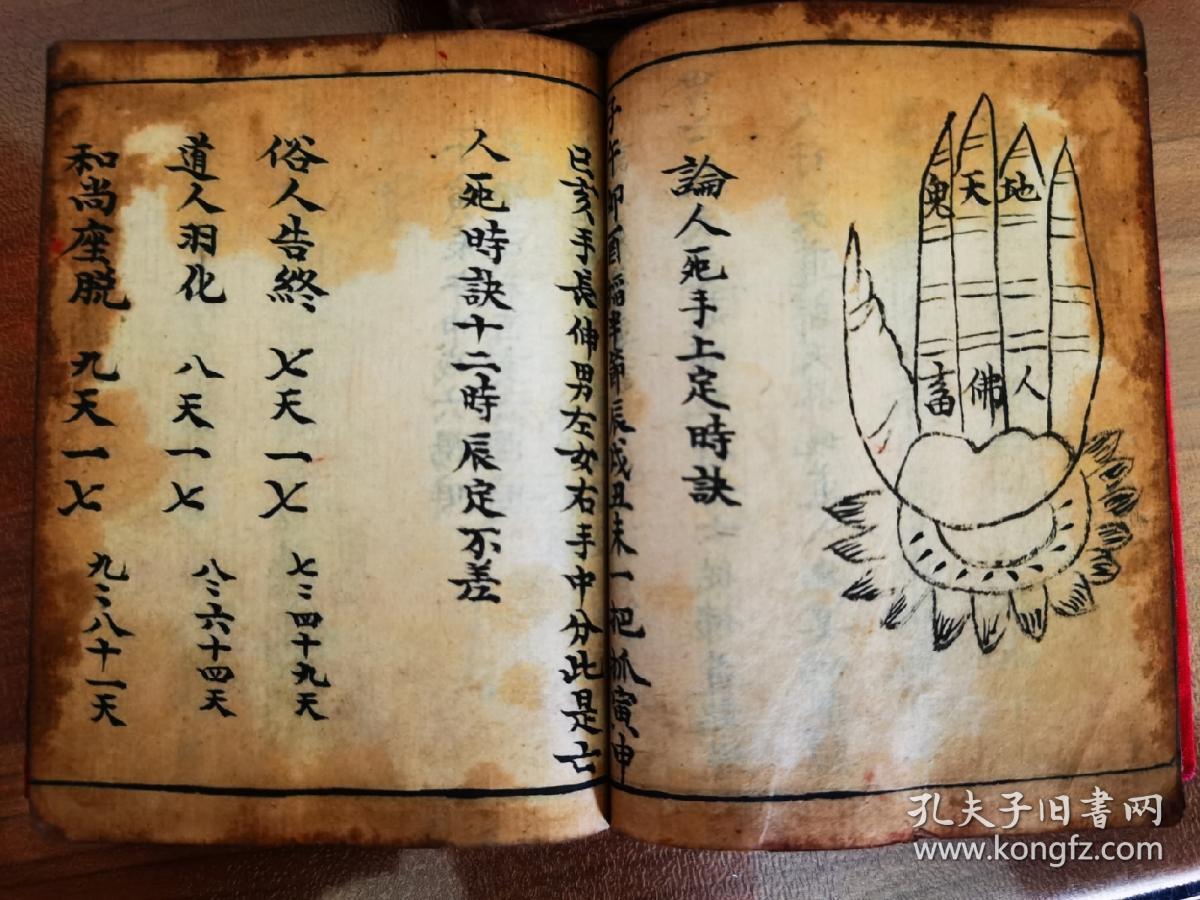 鬼天地
畜佛人
論人死手上定時訣
子午卯酉節辰戌丑未一把抓寅申
巳亥手長伸男左女右手中分此是亡
人死時訣十二時辰定不差
俗人告終 七天一七 七〻四十九天
道人羽化 八天一七 八〻六十四天
和尚座脱 九天一七 九〻八十一天
孔夫子旧書网
www.kongfz.com